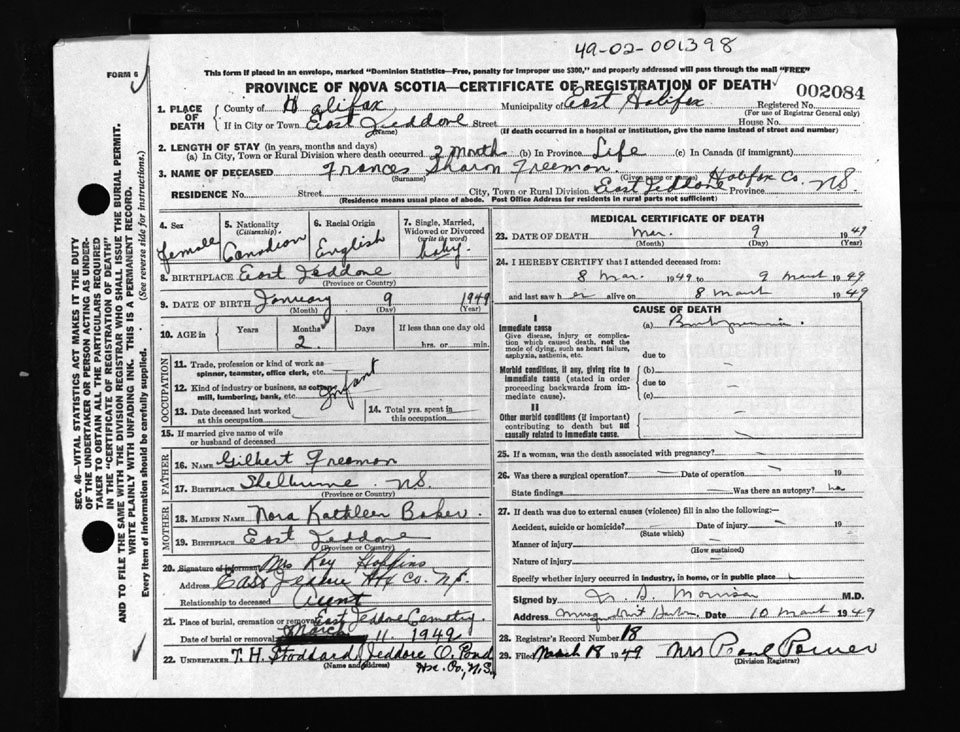 49-02-001398
FORM 6
This form if placed in an envelope, marked "Dominion Statistics—Free, penalty for improper use $300," and properly addressed will pass through the mail "FREE"
PROVINCE OF NOVA SCOTIA—CERTIFICATE OF REGISTRATION OF DEATH
002084
1. PLACE OF DEATH
County of Halifax Municipality of East Halifax Registered No.
(For use of Registrar General only)
If in City or Town East Jeddore Street House No.
(Name) (If death occurred in a hospital or institution, give the name instead of street and number)
2. LENGTH OF STAY (in years, months and days)
(a) In City, Town or Rural Division where death occurred 2 Month (b) In Province Life (c) In Canada (if immigrant)
3. NAME OF DECEASED Frances Sharon Freeman
(Surname) (Given name or names)
RESIDENCE No. Street City, Town or Rural Division East Jeddore Halifax Co. Province N.S.
(Residence means usual place of abode. Post Office Address for residents in rural parts not sufficient)
4. Sex Female
5. Nationality (Citizenship) Canadian
6. Racial Origin English
7. Single, Married, Widowed or Divorced (write the word) baby.
8. BIRTHPLACE East Jeddore
(Province or Country)
9. DATE OF BIRTH January 9 1949
(Month) (Day) (Year)
10. AGE in Years Months 2 Days If less than one day old hrs. or min.
OCCUPATION
11. Trade, profession or kind of work as spinner, teamster, office clerk, etc.
12. Kind of industry or business, as cotton mill, lumbering, bank, etc. Infant
13. Date deceased last worked at this occupation
14. Total yrs. spent in this occupation
15. If married give name of wife or husband of deceased
FATHER
16. NAME Gilbert Freeman
17. BIRTHPLACE Shelburne N.S.
(Province or Country)
MOTHER
18. MAIDEN NAME Nora Kathleen Baker.
19. BIRTHPLACE East Jeddore
(Province or Country)
20. Signature of informant Mrs Kay
Address East Jeddore Hfx Co. N.S.
Relationship to deceased Aunt
21. Place of burial, cremation or removal East Jeddore Cemetery.
Date of burial or removal March 11. 1949
22. UNDERTAKER T. H. Stoddard, Jeddore O. Pond
(Name and address) Hx. Co, N.S.,
MEDICAL CERTIFICATE OF DEATH
23. DATE OF DEATH Mar. 9 1949
(Month) (Day) (Year)
24. I HEREBY CERTIFY that I attended deceased from:
8 Mar. 1949 to 9 March 1949
and last saw her alive on 8 March 1949
CAUSE OF DEATH
I
Immediate cause (a)
Give disease, injury or complication which caused death, not the mode of dying, such as heart failure, asphyxia, asthenia, etc.
due to
Morbid conditions, if any, giving rise to immediate cause (stated in order proceeding backwards from immediate cause).
(b)
due to
(c)
II
Other morbid conditions (if important) contributing to death but not causally related to immediate cause.
25. If a woman, was the death associated with pregnancy?
26. Was there a surgical operation? Date of operation 19
State findings Was there an autopsy? no
27. If death was due to external causes (violence) fill in also the following:—
Accident, suicide or homicide? Date of injury 19
(State which)
Manner of injury
(How sustained)
Nature of injury
Specify whether injury occurred in industry, in home, or in public place
Signed by Morrison M.D.
Address Musquodoboit Harbor Date 10 March 1949
28. Registrar's Record Number 18
29. Filed March 18 1949 Mrs Pearl
(Division Registrar)
SEC. 46—VITAL STATISTICS ACT MAKES IT THE DUTY
OF THE UNDERTAKER OR PERSON ACTING AS UNDER-
TAKER TO OBTAIN ALL THE PARTICULARS REQUIRED
IN THE "CERTIFICATE OF REGISTRATION OF DEATH"
AND TO FILE THE SAME WITH THE DIVISION REGISTRAR WHO SHALL ISSUE THE BURIAL PERMIT.
WRITE PLAINLY WITH UNFADING INK. THIS IS A PERMANENT RECORD.
Every item of information should be carefully supplied. (See reverse side for instructions.)